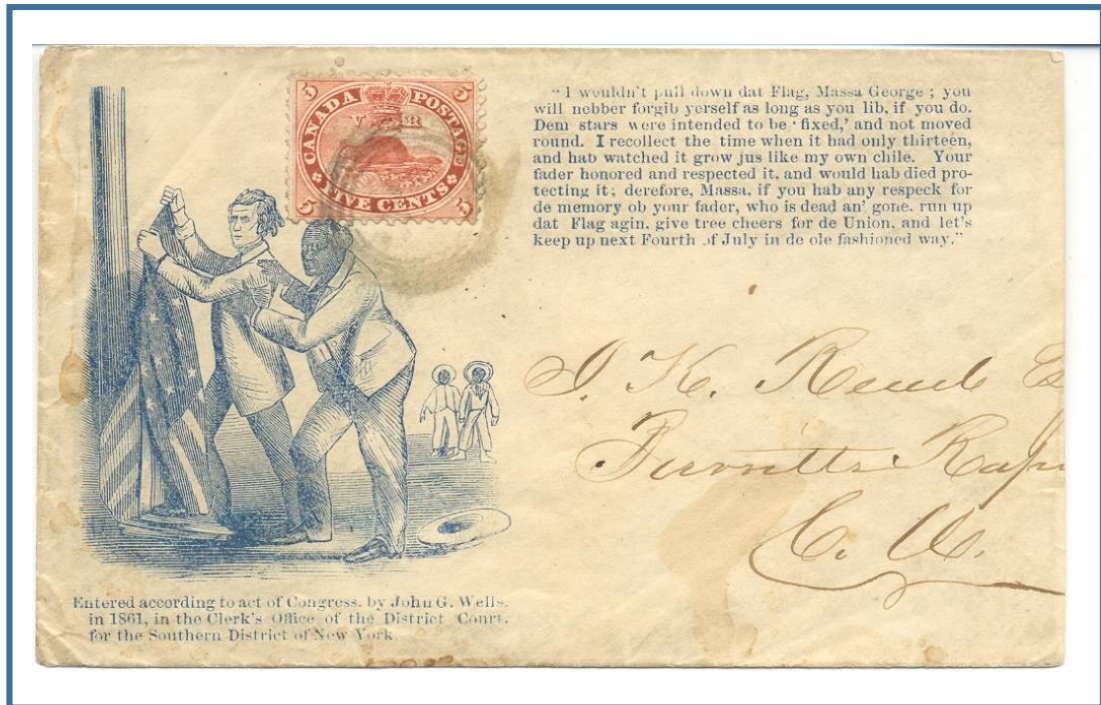 5 5
CANADA POSTAGE
V R
FIVE CENTS
5 5
"I wouldn't pull down dat Flag, Massa George ; you
will nebber forgib yerself as long as you lib, if you do.
Dem stars were intended to be 'fixed,' and not moved
round. I recollect the time when it had only thirteen,
and hab watched it grow jus like my own chile. Your
fader honored and respected it, and would hab died pro-
tecting it; derefore, Massa, if you hab any respeck for
de memory ob your fader, who is dead an' gone, run up
dat Flag agin, give tree cheers for de Union, and let's
keep up next Fourth of July in de ole fashioned way."
C. W.
Entered according to act of Congress, by John G. Wells,
in 1861, in the Clerk's Office of the District Court,
for the Southern District of New York